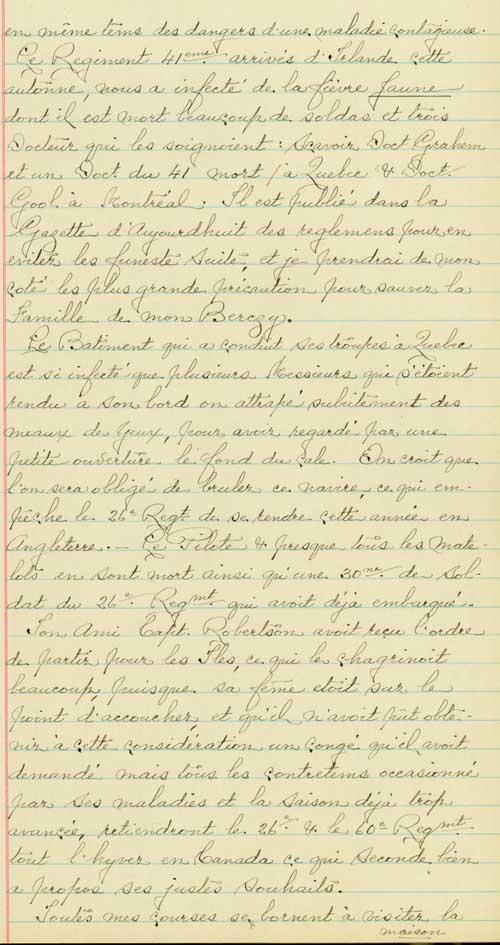 en même tems des dangers d'une maladie contagieuse.
Le Regiment 41eme arrivés d'Irlande cette
automne, nous a infecté de la fièvre jaune
dont il est mort beaucoup de soldas et trois
Docteur qui les soignoient: scavoir Doct Grahem
et un Doct. du 41 mort à Quebec & Doct.
Gool à Montréal. Il est publié dans la
Gazette d'Aujourdhuit des reglemens pour en
eviter les funeste suite, et je prendrai de mon
coté les plus grande précaution pour sauver la
Famille de mon Berczy.
Le Batiment qui a conduit ses troupes à Quebec
est si infecté que plusieurs Messieurs qui s'étoient
rendu a son bord on attrapé subitement des
meaux de yeux, pour avoir regardé par une
petite ouverture le fond du cale. On croit que
l'on sera obligé de bruler ce navire, ce qui em-
pêche le 26e Regt. de se rendre cette année en
Angleterre. — Le Pilote & presque tous les mate-
lots en sont mort ainsi qu'une 30ne de sol-
dat du 26e Regmt qui avoit déjà embarqué.
Ton Ami Capt. Robertson avoit reçu l'ordre
de partir pour les Îles, ce qui le chagrinoit
beaucoup puisque sa fême etoit sur le
point d'accoucher, et qu'il n'avoit pût obte-
nir à cette considération un congé qu'il avoit
demandé mais tous les contretems occasionné
par ses maladies et la saison déjà trop
avancée, retiendront le 26e & le 60e Regmt
tout l'hyver en Canada ce qui seconde bien
a propos ses justes souhaits.
Toutes mes courses se bornent à visiter la
maison